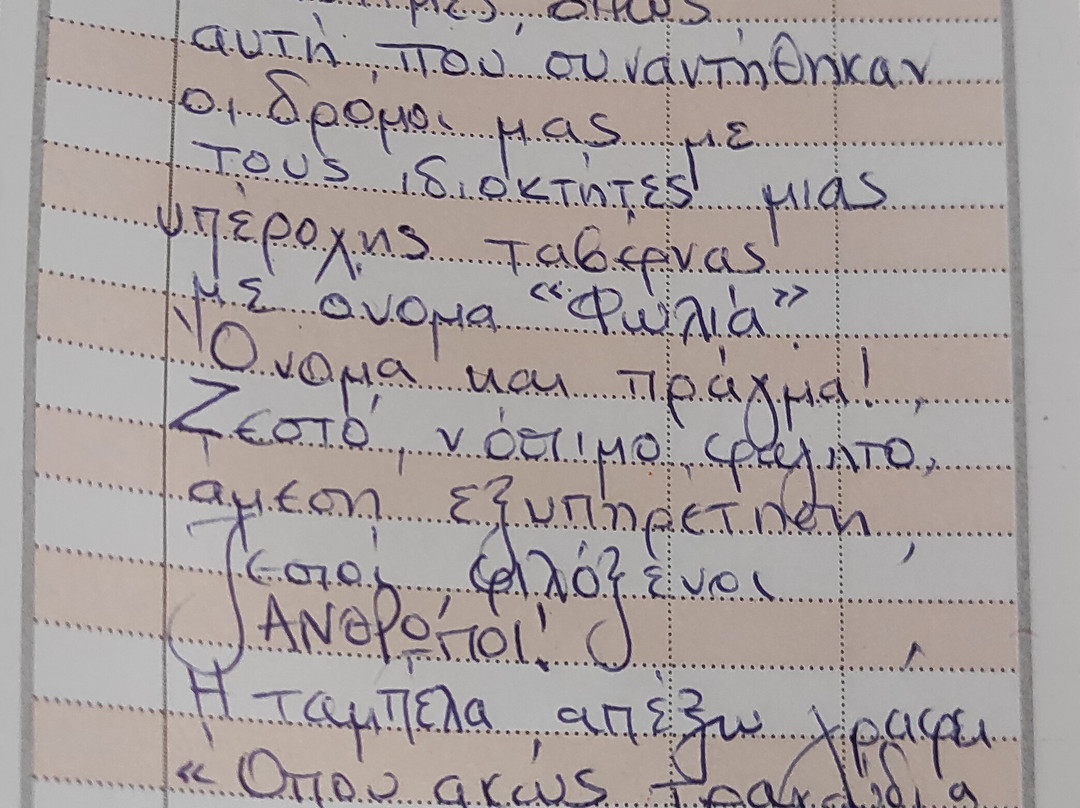 όπως
αυτή, που συναντήθηκαν
οι δρόμοι μας με
τους ιδιοκτήτες μιας
υπέροχης ταβέρνας
με όνομα “Φωλιά”.
Όνομα και πράγμα!
Ζεστό, νόστιμο φαγητό,
άμεση εξυπηρέτηση,
ζεστοί, φιλόξενοι
ΆΝΘΡΩΠΟΙ!
Η ταμπέλα απέξω γράφει
«Όπου ακούς τραγούδια